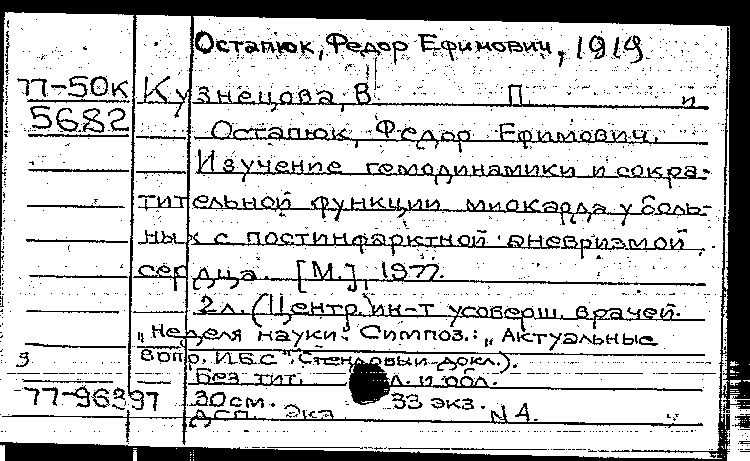 Остапюк, Федор Ефимович, 1919
77-50к Кузнецова, В. П. и
5682 Остапюк, Федор Ефимович.
Изучение гемодинамики и сокра-
тительной функции миокарда у боль-
ных с постинфарктной аневризмой
сердца. [М.], 1977.
2 л. (Центр. ин-т усоверш. врачей.
„Неделя науки". Симпоз.: „Актуальные
вопр. И.Б.С." Стендовый докл.).
Без тит. л. и обл.
77-96397 30 см. 33 экз.
ДСП. Экз N 4.